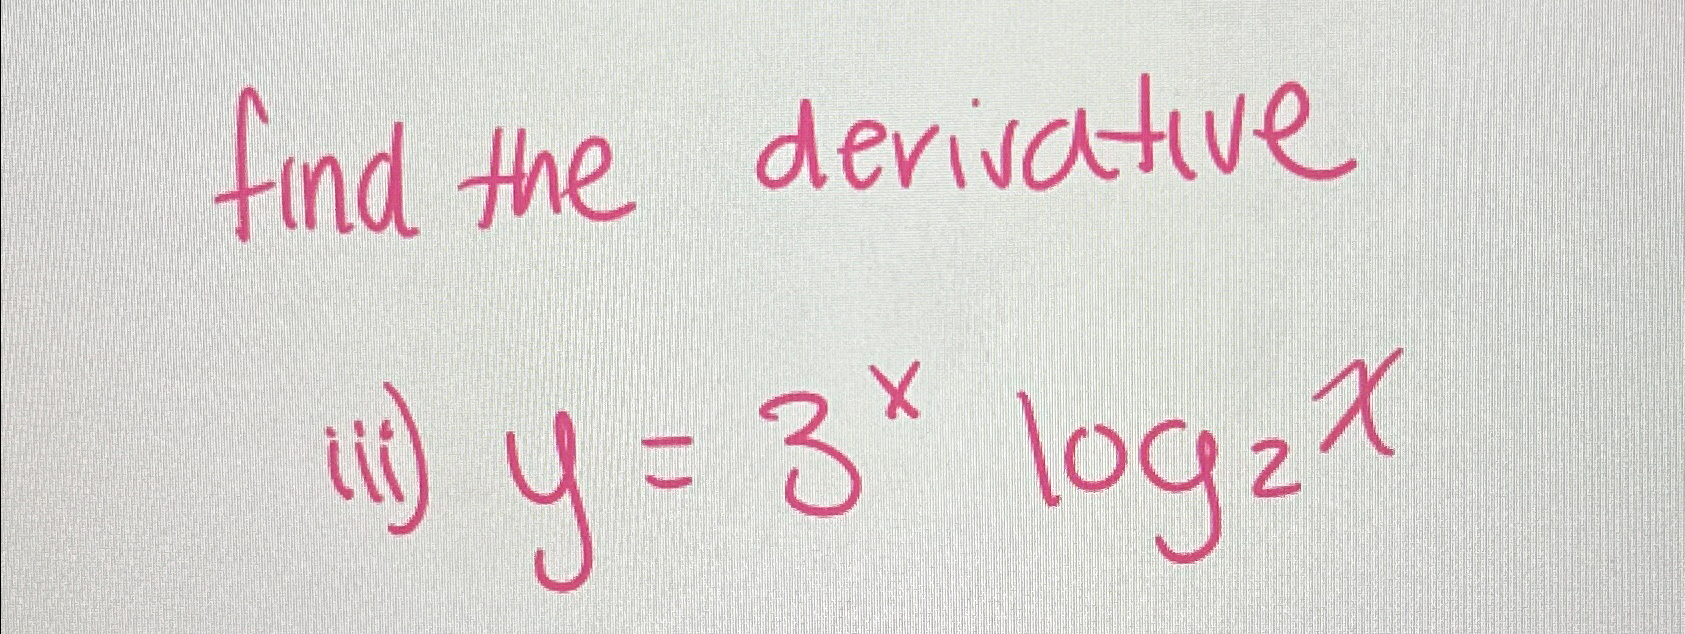 find the derivative
iii) y = 3^x log₂ x